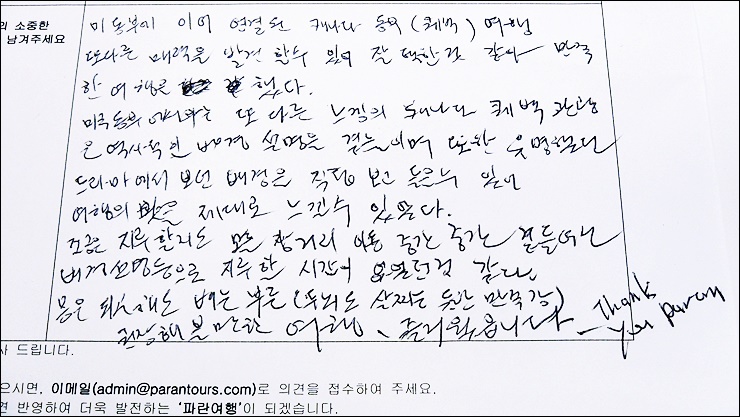 의 소중한
남겨주세요
미동부에 이어 연결된 캐나다 동부 (퀘벡) 여행
또다른 매력을 발견할수 있어 잘 택한것 같아 만족
한 여행을 했다.
미국동부 에서와는 또 다른 느낌의 캐나다 퀘벡 관광
은 역사적인 배경 설명을 곁들이며 또한 유명했던
드라마에서 보던 배경을 직접 보고 들을수 있어
여행의 맛을 제대로 느낄수 있었다.
조금은 지루할지도 모를 장거리 이동 중간 중간 곁들여
배경설명등으로 지루할 시간이 없었던것 같다.
몸은 피곤해도 배는 부른 (두뇌도 살찌는 동반 만족감)
권장해 볼 만한 여행, 즐거웠습니다 - Thank
you paran
사 드립니다.
으시면, 이메일(admin@parantours.com)로 의견을 접수하여 주세요.
견 반영하여 더욱 발전하는 '파란여행'이 되겠습니다.